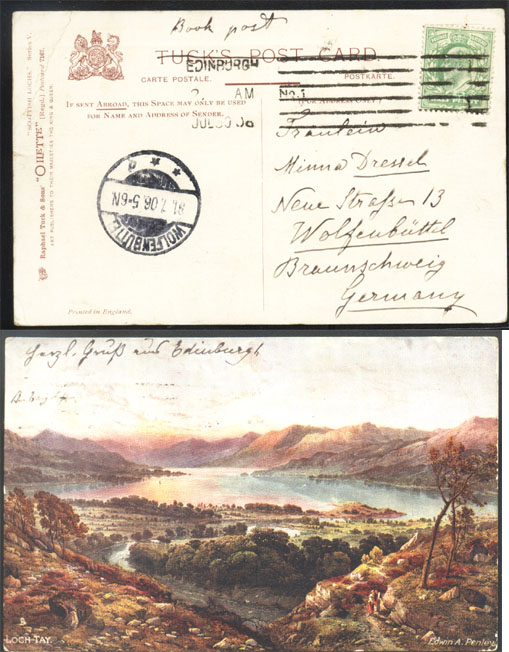 Book post
TUCK'S POST CARD
CARTE POSTALE. POSTKARTE.
EDINBURGH
AM No. 1
JUL 30 06
IF SENT ABROAD, THIS SPACE MAY ONLY BE USED
FOR NAME AND ADDRESS OF SENDER.
(FOR ADDRESS ONLY)
Raphael Tuck & Sons' "OILETTE" (Regd.) Postcard 7287.
"SCOTTISH LOCHS." Series V.
ART PUBLISHERS TO THEIR MAJESTIES THE KING & QUEEN.
WOLFENBÜTTEL
31.7.06.5-6N
Fräulein
Minna Dressel
Neue Straße 13
Wolfenbüttel
Braunschweig
Germany
Printed in England.
Herzl. Gruß aus Edinburgh
LOCH TAY.
Edwin A. Penley